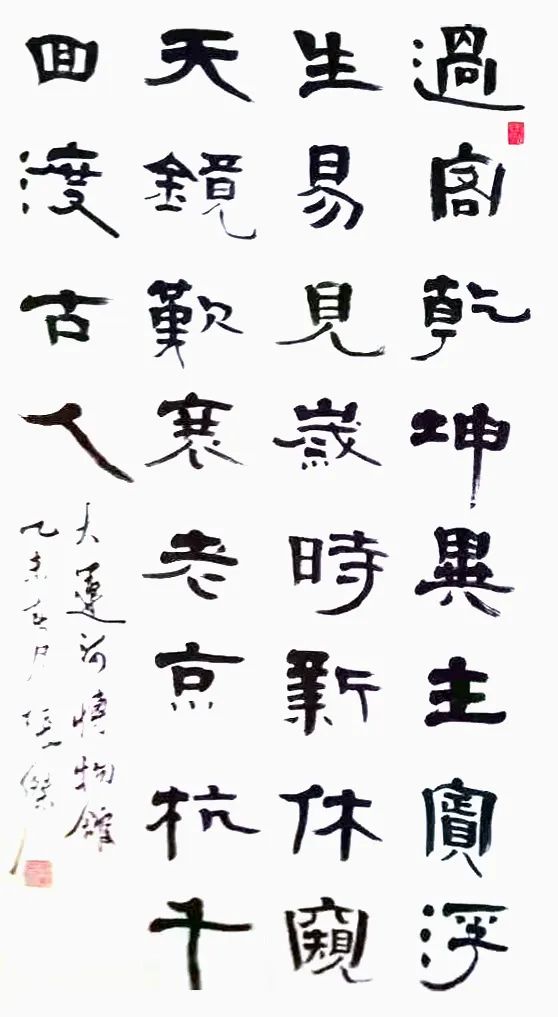 過客乾坤異主賓浮
生易見歲時新休窺
天鏡歎衰老京杭千
回渡古人
大運河博物館
乙未 月 傑